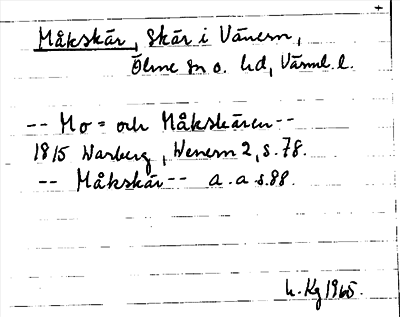 Måkskär, skär i Vänern,
Ölme sn o. hd, Värml. l.
-- Mo= och Måkskären --
1815 Warberg, Wenern 2, s. 78.
-- Måkskär -- a. a s. 88.
h. Kg 1965.